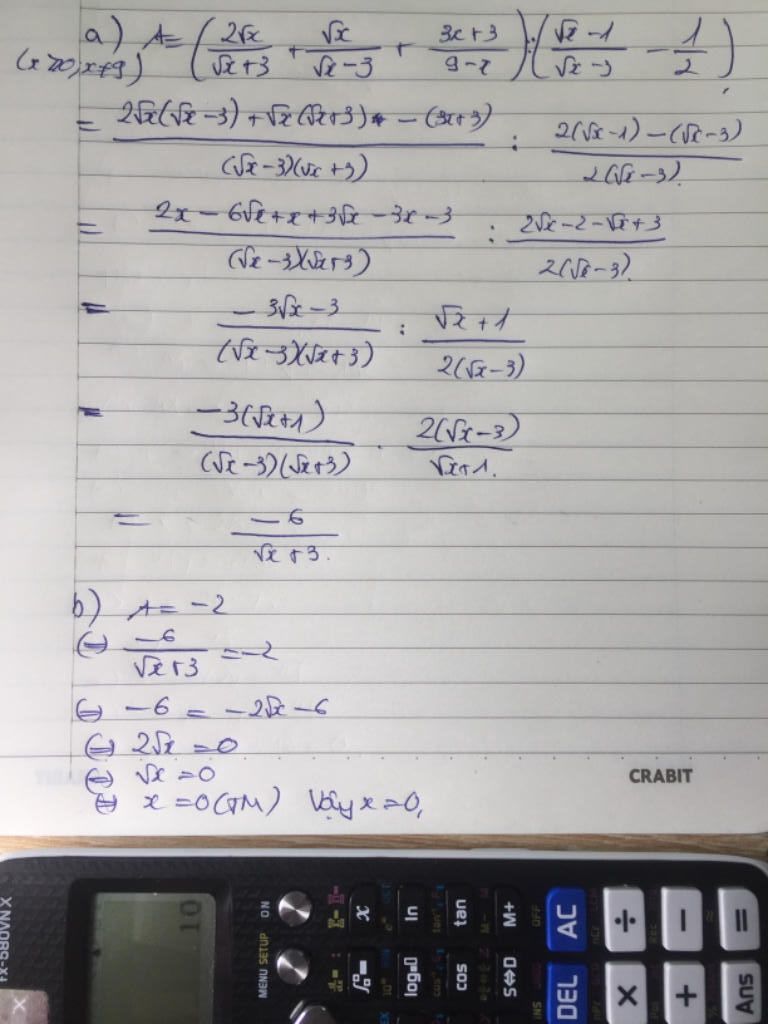 a) A = (2√x/(√x+3) + √x/(√x-3) + (3x+3)/(9-x)) : ((√x-1)/(√x-3) - 1/2)
(x≥0, x≠9)
= (2√x(√x-3) + √x(√x+3) - (3x+3))/((√x-3)(√x+3)) : (2(√x-1) - (√x-3))/(2(√x-3))
= (2x - 6√x + x + 3√x - 3x - 3)/((√x-3)(√x+3)) : (2√x - 2 - √x + 3)/(2(√x-3))
= (-3√x - 3)/((√x-3)(√x+3)) : (√x+1)/(2(√x-3))
= (-3(√x+1))/((√x-3)(√x+3)) . (2(√x-3))/(√x+1)
= -6/(√x+3)
b) A = -2
⇔ -6/(√x+3) = -2
⇔ -6 = -2√x - 6
⇔ 2√x = 0
⇔ √x = 0
⇔ x = 0 (TM) Vậy x = 0
CRABIT
fx-580VN X
10
MENU SETUP ON
x ln tan M+ OFF AC ÷ − =
log cos S⇔D INS DEL × + Ans